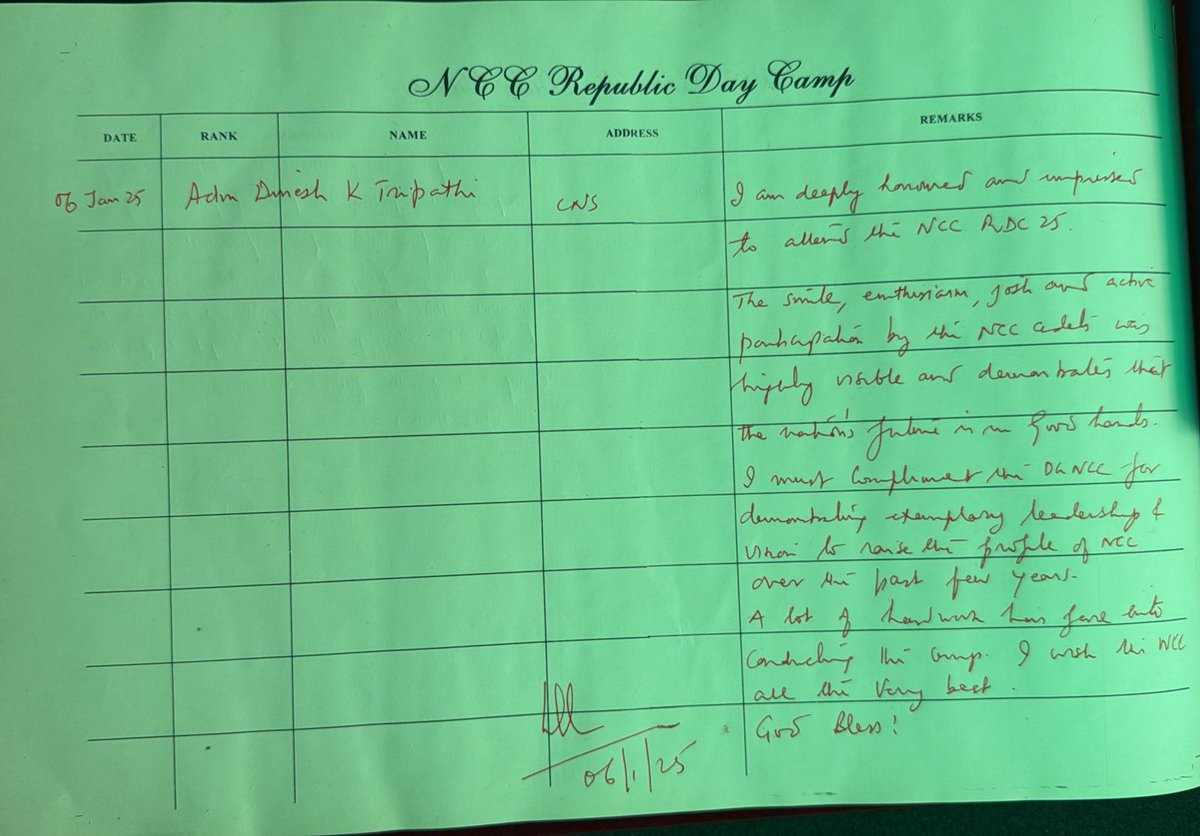 NCC Republic Day Camp
DATE RANK NAME ADDRESS REMARKS
06 Jan 25 Adm Dinesh K Tripathi CNS I am deeply honoured and impressed
to attend the NCC RDC 25.
The smile, enthusiasm, josh and active
participation by the NCC cadets was
highly visible and demonstrates that
the nation's future is in Good hands.
I must compliment the DGNCC for
demonstrating exemplary leadership &
vision to raise the profile of NCC
over the past few years.
A lot of hardwork has gone into
conducting the camp. I wish the NCC
all the very best.
God Bless!
06/1/25